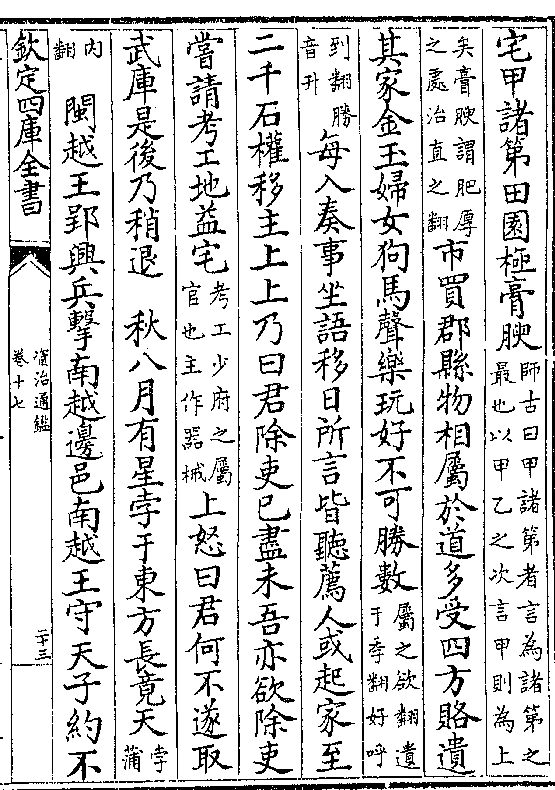 宅甲諸第田園極膏腴師古曰甲諸第者言為諸第之最也以甲乙之次言甲則為上
矣膏腴謂肥厚之處治直之翻市買郡縣物相屬於道多受四方賂遺
其家金玉婦女狗馬聲樂玩好不可勝數屬之欲翻遺于季翻好呼
到翻勝音升每入奏事坐語移日所言皆聽薦人或起家至
二千石權移主上上乃曰君除吏已盡未吾亦欲除吏
嘗請考工地益宅考工少府之屬官也主作器械上怒曰君何不遂取
武庫是後乃稍退　秋八月有星孛于東方長竟天孛蒲
內翻　閩越王郢興兵擊南越邊邑南越王守天子約不
欽定四庫全書
資治通鑑
卷十七
二十三